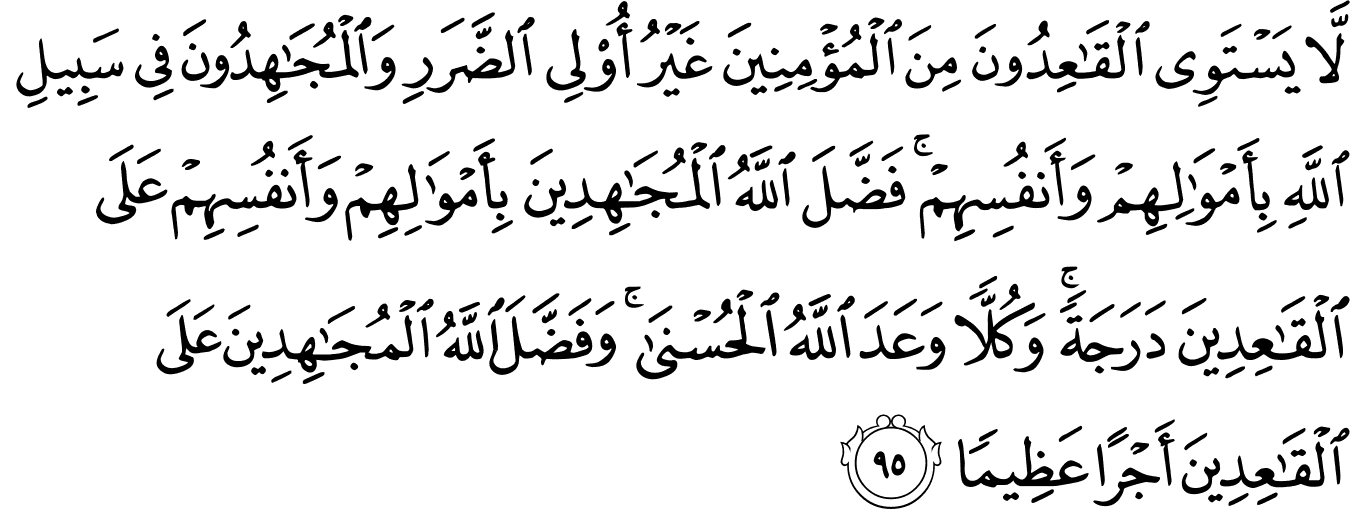 لَّا يَسْتَوِى ٱلْقَـٰعِدُونَ مِنَ ٱلْمُؤْمِنِينَ غَيْرُ أُو۟لِى ٱلضَّرَرِ وَٱلْمُجَـٰهِدُونَ فِى سَبِيلِ
ٱللَّهِ بِأَمْوَٰلِهِمْ وَأَنفُسِهِمْ ۚ فَضَّلَ ٱللَّهُ ٱلْمُجَـٰهِدِينَ بِأَمْوَٰلِهِمْ وَأَنفُسِهِمْ عَلَى
ٱلْقَـٰعِدِينَ دَرَجَةً ۚ وَكُلًّا وَعَدَ ٱللَّهُ ٱلْحُسْنَىٰ ۚ وَفَضَّلَ ٱللَّهُ ٱلْمُجَـٰهِدِينَ عَلَى
ٱلْقَـٰعِدِينَ أَجْرًا عَظِيمًا ٩٥